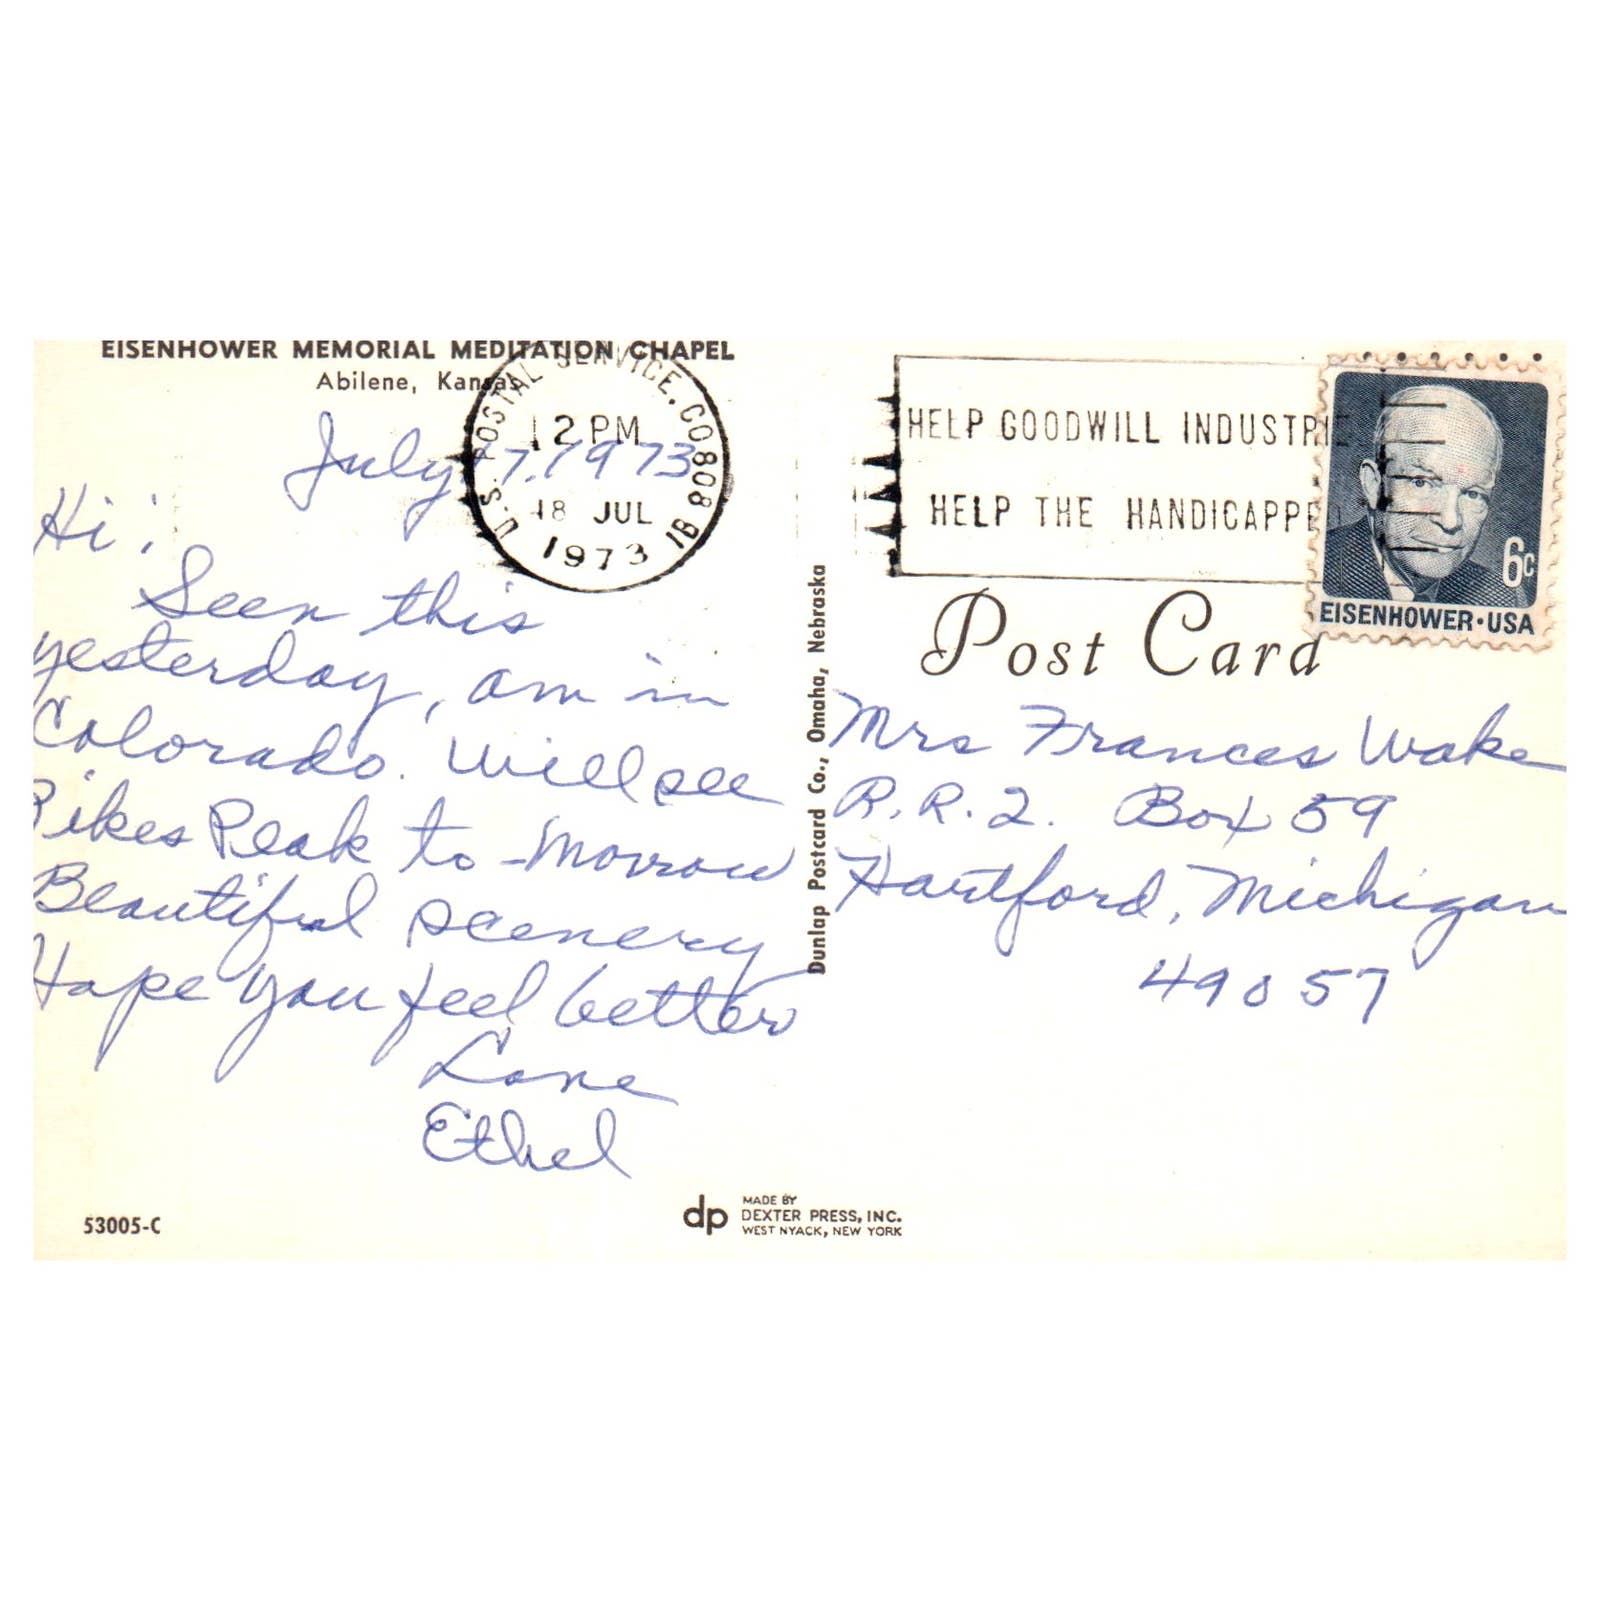 EISENHOWER MEMORIAL MEDITATION CHAPEL
Abilene, Kansas
July 17, 1973
Hi!
Seen this
yesterday, am in
Colorado. Will see
Pikes Peak to-morrow
Beautiful scenery
Hope you feel better
Love
Ethel
53005-C
dp
MADE BY
DEXTER PRESS, INC.
WEST NYACK, NEW YORK
Dunlap Postcard Co., Omaha, Nebraska
U.S. POSTAL SERVICE, CO 808
12 PM
18 JUL
1973
HELP GOODWILL INDUSTRIE
HELP THE HANDICAPPE
6c
EISENHOWER · USA
Post Card
Mrs Frances Wake
R.R.2. Box 59
Hartford, Michigan
49057